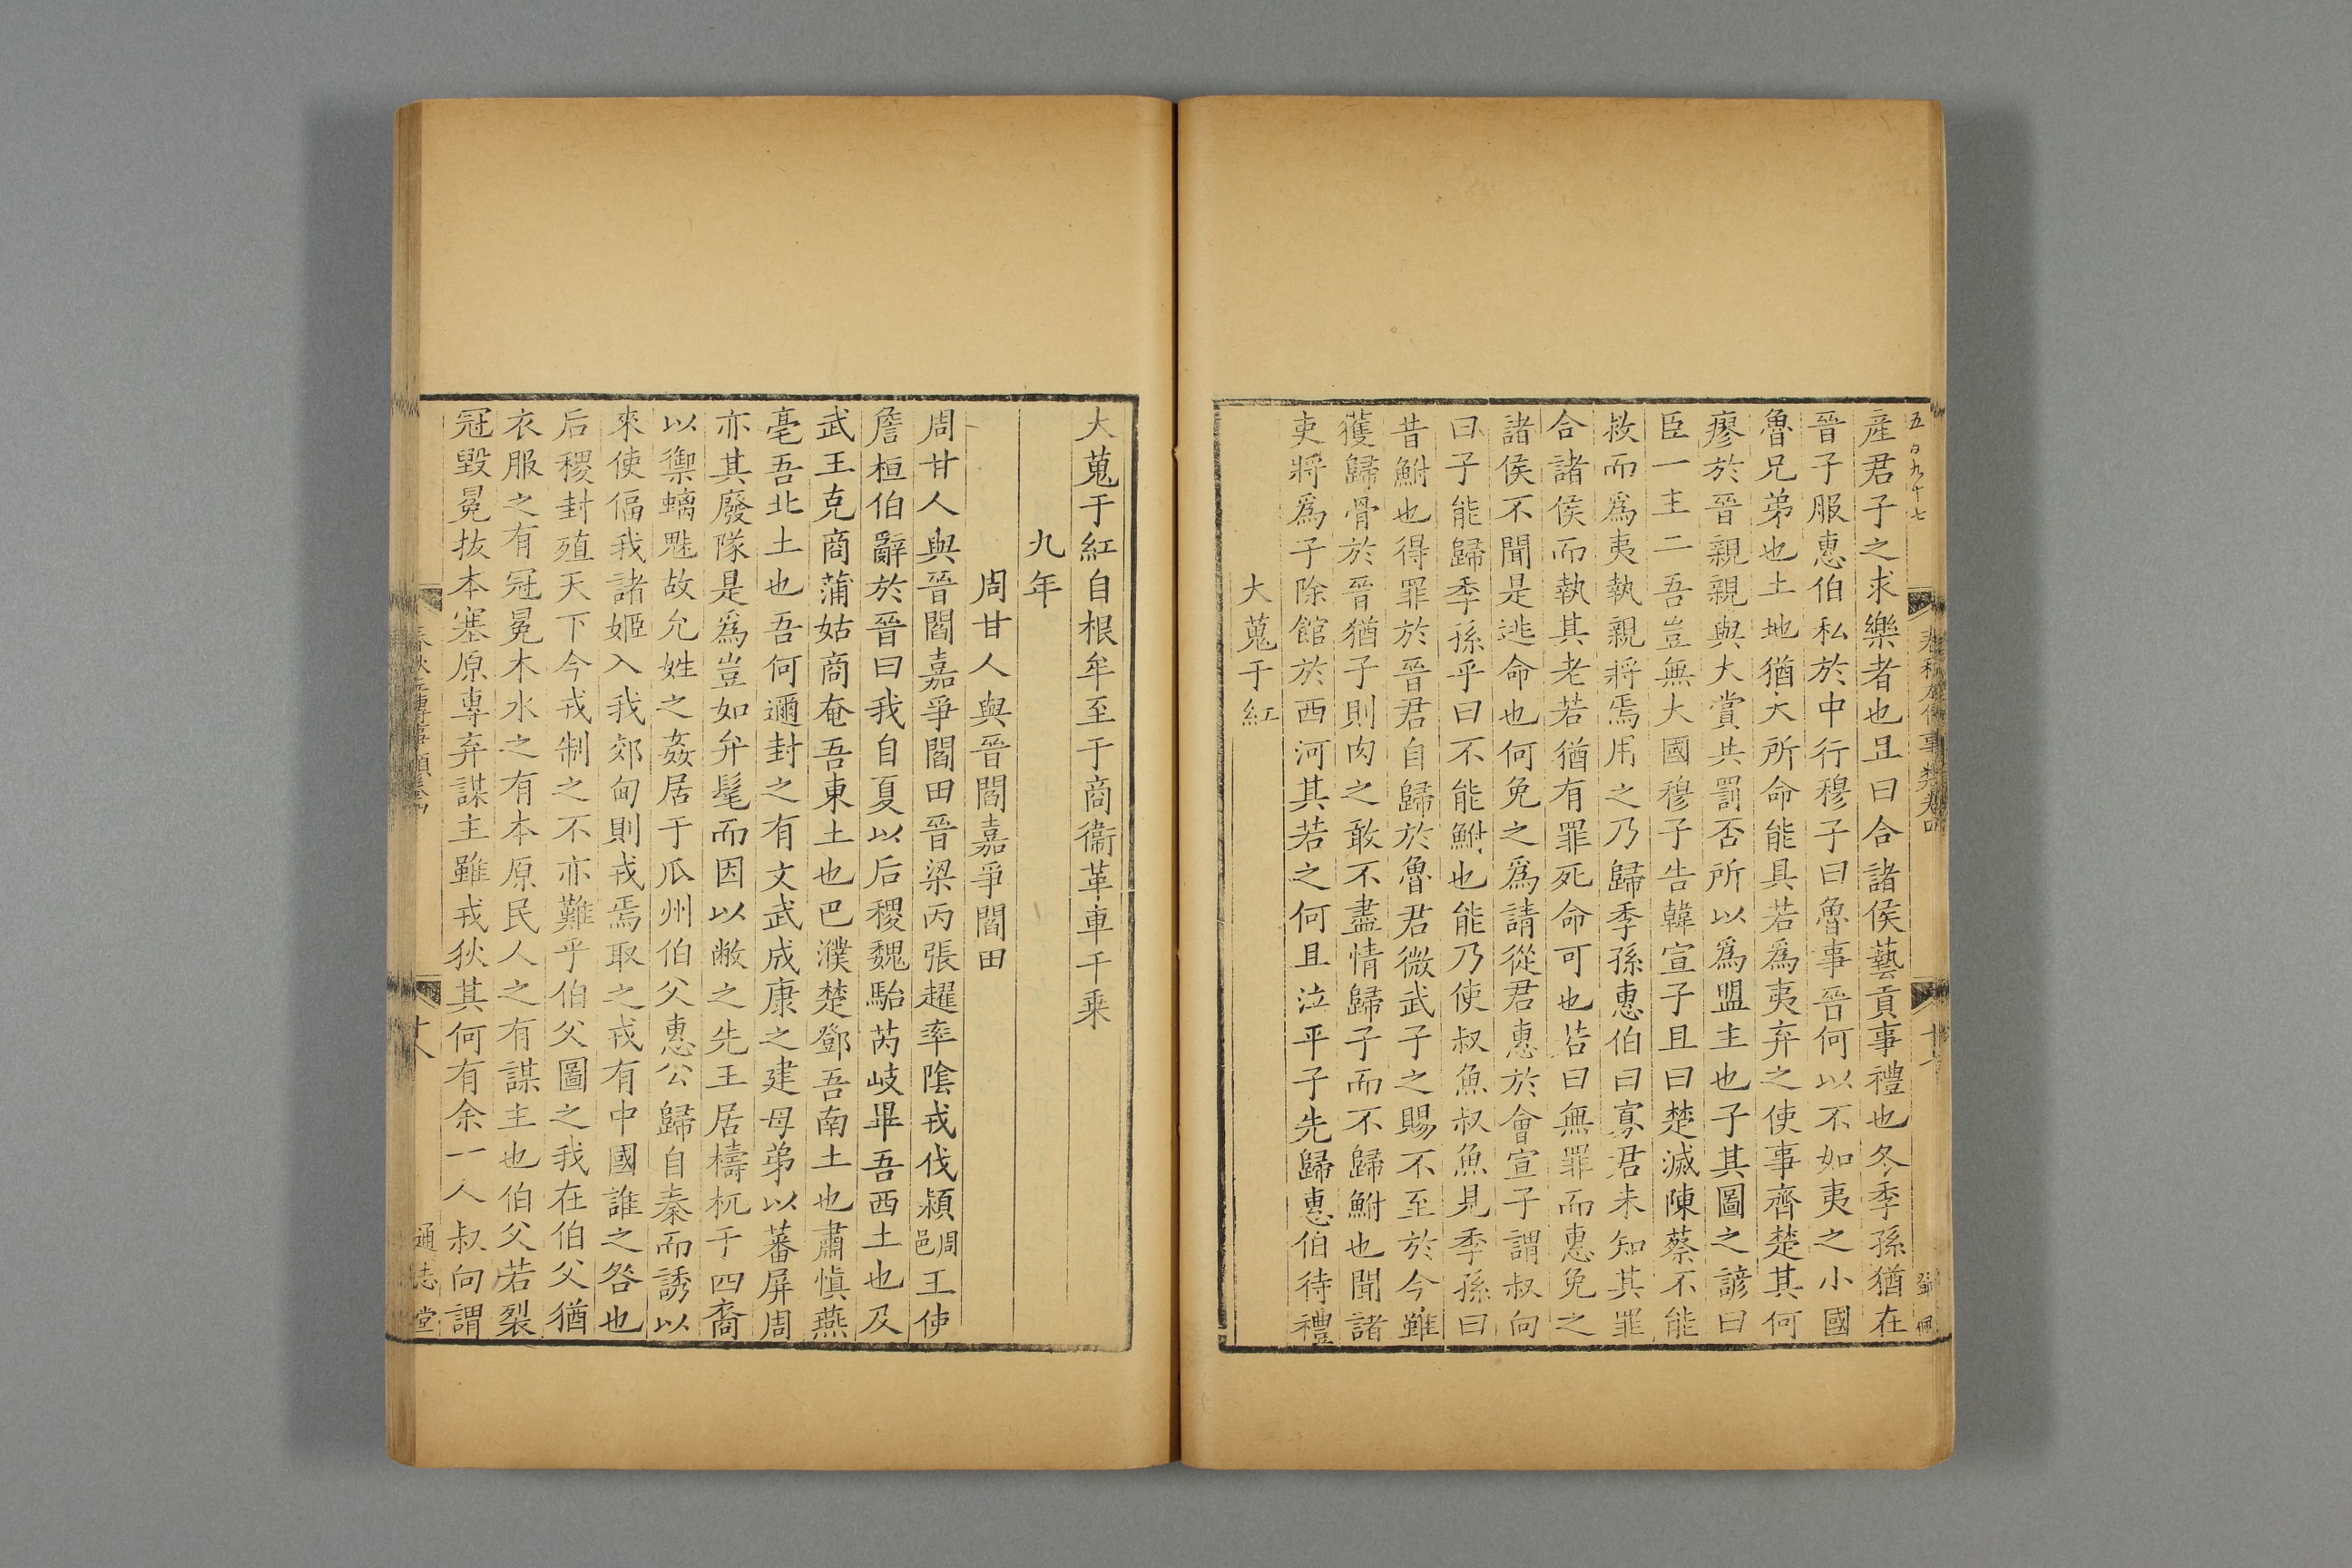 五百九十七
産君子之求樂者也且曰合諸侯藝貢事禮也冬季孫猶在
晉子服惠伯私於中行穆子曰魯事晉何以不如夷之小國
魯兄弟也土地猶大所命能具若爲夷弃之使事齊楚其何
瘳於晉親親與大賞共罰否所以爲盟主也子其圖之諺曰
臣一主二吾豈無大國穆子告韓宣子且曰楚滅陳蔡不能
救而爲夷執親將焉用之乃歸季孫惠伯曰寡君未知其罪
合諸侯而執其老若猶有罪死命可也若曰無罪而惠免之
諸侯不聞是逃命也何免之爲請從君惠於會宣子謂叔向
曰子能歸季孫乎曰不能鮒也能乃使叔魚叔魚見季孫曰
昔鮒也得罪於晉君自歸於魯君微武子之賜不至於今雖
獲歸骨於晉猶子則肉之敢不盡情歸子而不歸鮒也聞諸
吏將爲子除館於西河其若之何且泣平子先歸惠伯待禮
大蒐于紅
大蒐于紅自根牟至于商衞革車千乘
九年
周甘人與晉閻嘉爭閻田
周甘人與晉閻嘉爭閻田晉梁丙張趯率隂戎伐潁周邑王使
詹桓伯辭於晉曰我自夏以后稷魏駘芮岐畢吾西土也及
武王克商蒲姑商奄吾東土也巴濮楚鄧吾南土也肅愼燕
亳吾北土也吾何邇封之有文武成康之建母弟以蕃屏周
亦其廢隊是爲豈如弁髦而因以敝之先王居檮杌于四裔
以禦螭魅故允姓之姦居于瓜州伯父惠公歸自秦而誘以
來使偪我諸姬入我郊甸則戎焉取之戎有中國誰之咎也
后稷封殖天下今戎制之不亦難乎伯父圖之我在伯父猶
衣服之有冠冕木水之有本原民人之有謀主也伯父若裂
冠毀冕拔本塞原專弃謀主雖戎狄其何有余一人叔向謂
通志堂